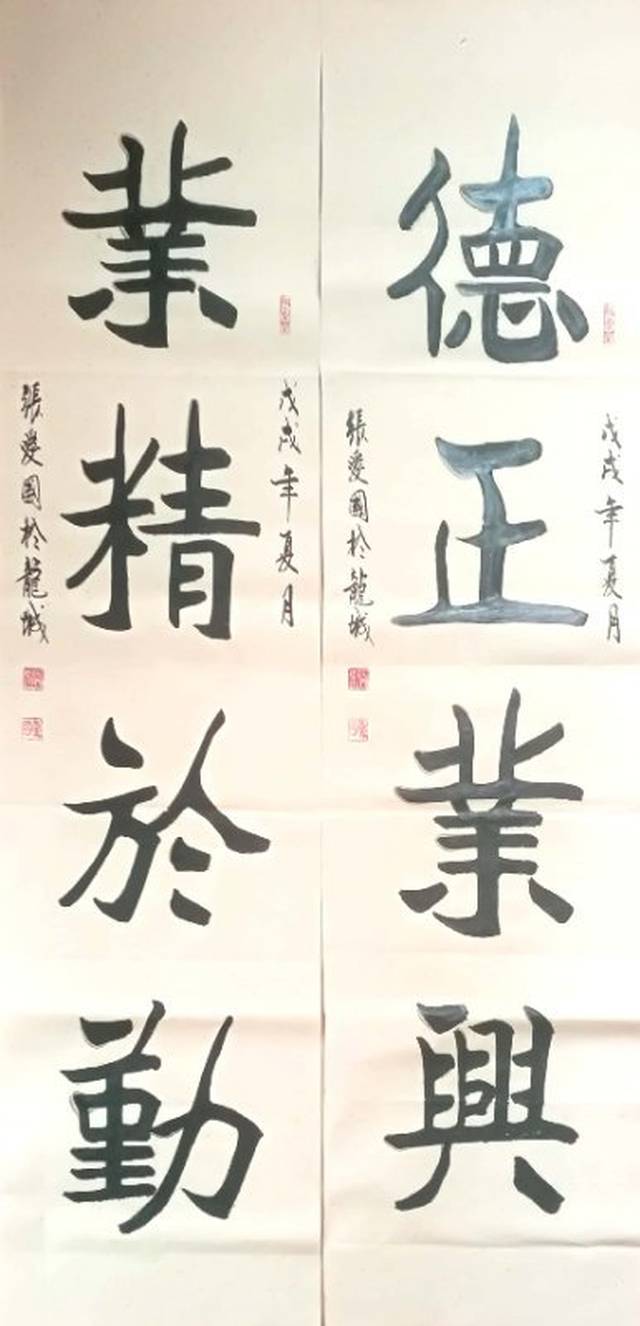 德正業興
戊戌年夏月
張愛國於龍城
業精於勤
戊戌年夏月
張愛國於龍城